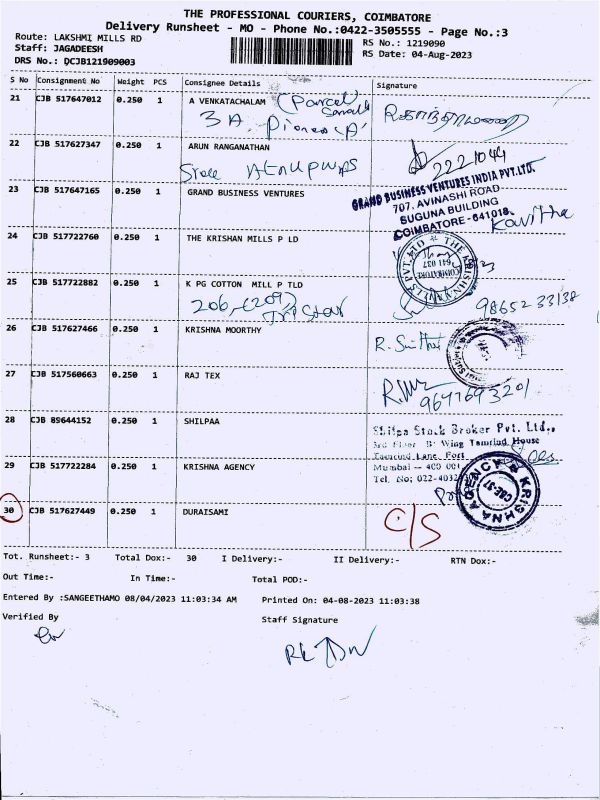 THE PROFESSIONAL COURIERS, COIMBATORE
Delivery Runsheet - MO - Phone No.:0422-3505555 - Page No.:3
Route: LAKSHMI MILLS RD
RS No.: 1219090
Staff: JAGADEESH
RS Date: 04-Aug-2023
DRS No.: DCJB121909003
S No Consignment No Weight PCS Consignee Details Signature
21 CJB 517647012 0.250 1 A VENKATACHALAM (Parcel
3A
22 CJB 517627347 0.250 1 ARUN RANGANATHAN
2221044
23 CJB 517647165 0.250 1 GRAND BUSINESS VENTURES
GRAND BUSINESS VENTURES INDIA PVT.LTD.
707, AVINASHI ROAD
SUGUNA BUILDING
COIMBATORE - 641018.
Kavitha
24 CJB 517722760 0.250 1 THE KRISHAN MILLS P LD
THE KRISHNA MILLS PVT. LTD
COIMBATORE
641 037
25 CJB 517722882 0.250 1 K PG COTTON MILL P TLD
206, (209)
Tristar
98652 33138
26 CJB 517627466 0.250 1 KRISHNA MOORTHY
27 CJB 517560663 0.250 1 RAJ TEX
9677693201
28 CJB 89644152 0.250 1 SHILPAA
Shilpa Stock Broker Pvt. Ltd.,
3rd Floor B' Wing Tamrind House
Tamarind Lane, Fort
Mumbai - 400 001
Tel. No; 022-4032
29 CJB 517722284 0.250 1 KRISHNA AGENCY
KRISHNA AGENCY
CBE-37
30 CJB 517627449 0.250 1 DURAISAMI
C/S
Tot. Runsheet:- 3 Total Dox:- 30 I Delivery:- II Delivery:- RTN Dox:-
Out Time:- In Time:- Total POD:-
Entered By :SANGEETHAMO 08/04/2023 11:03:34 AM Printed On: 04-08-2023 11:03:38
Verified By Staff Signature